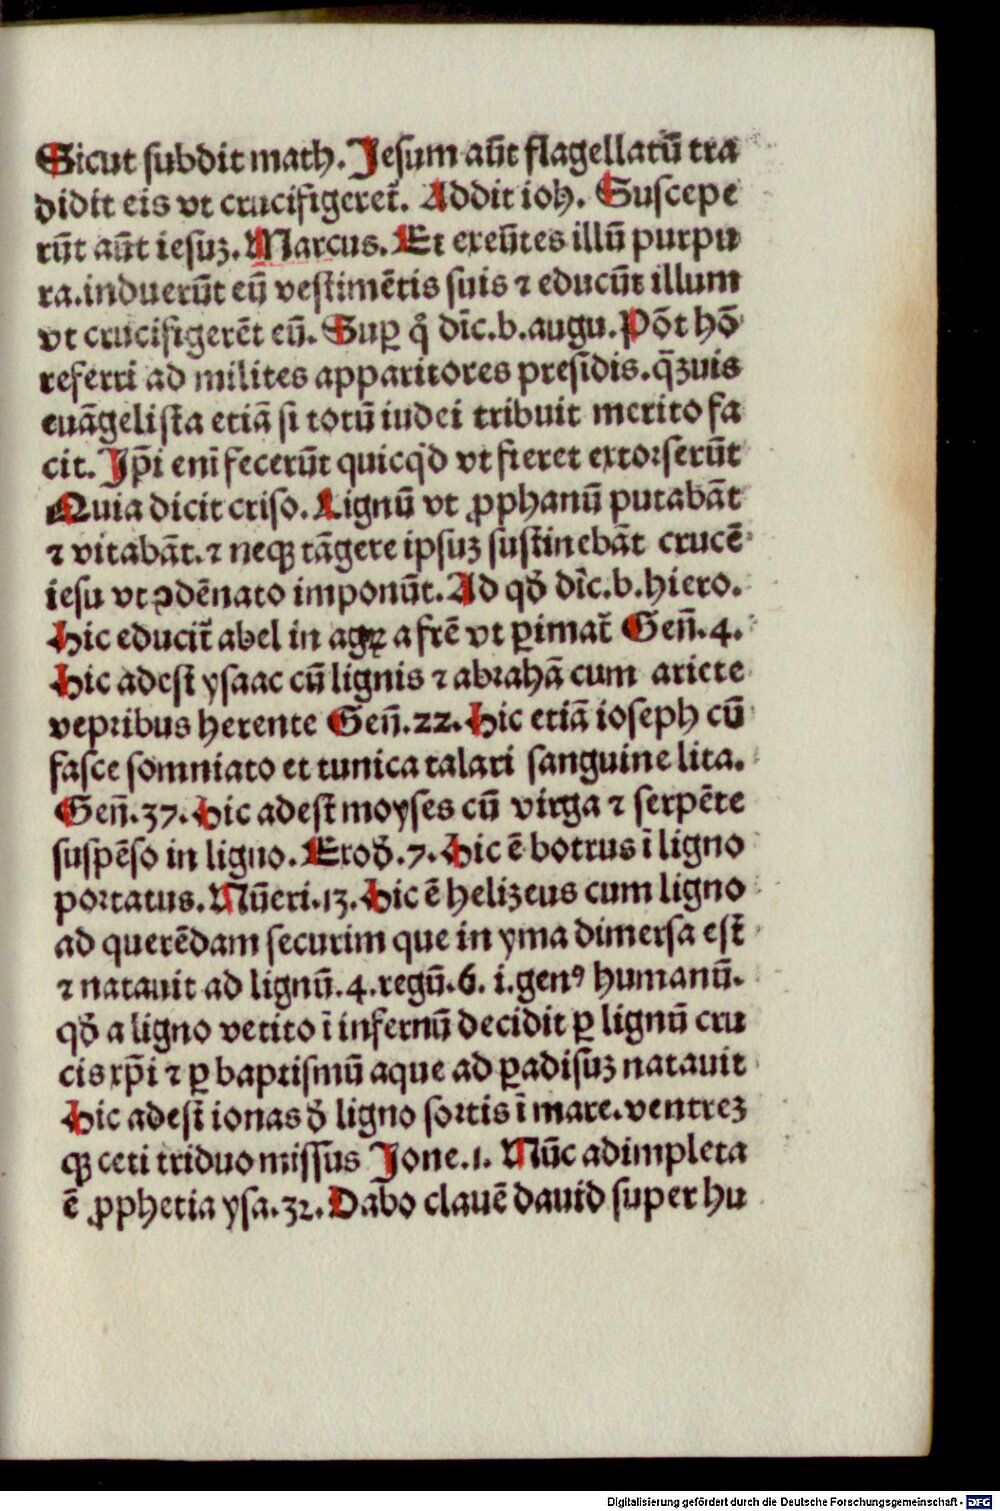 Sicut subdit math. Jesum aūt flagellatū tra
didit eis vt crucifigeret̄. Addit ioh. Suscepe
rūt aūt iesuꝫ. Marcus. Et exeūtes illū purpu
ra. induerūt eū vestimētis suis ⁊ educūt illum
vt crucifigerēt eū. Suꝑ q̊ dīc. b. augu. Pōt hō
referri ad milites apparitores presidis. q̄ꝫuis
euāgelista etiā si totū iudei tribuit merito fa
cit. Jp̄i eni̅ fecerūt quicq̇d vt fieret extorserūt
Quia dicit criso. Lignū vt ꝓphanū putabāt
⁊ vitabāt. ⁊ neqꝫ tāgere ipsuꝫ sustinebāt crucē
iesu vt ꝯdēnato imponūt. Ad qđ dīc. b. hiero.
Hic educit̄ abel in agꝝ a fr̄e vt ꝑimat̄ Geñ. 4.
Hic adest ysaac cū lignis ⁊ abrahā cum ariete
vepribus herente Geñ. 22. Hic etiā ioseph cū
fasce somniato et tunica talari sanguine lita.
Geñ. 37. Hic adest moyses cū virga ⁊ serpēte
suspēso in ligno. Exođ. 7. Hic ē botrus ī ligno
portatus. Nūeri. 13. Hic ē helizeus cum ligno
ad querēdam securim que in yma dimersa est
⁊ natauit ad lignū. 4. regū. 6. i. genꝰ humanū.
qđ a ligno vetito ī infernū decidit ꝑ lignū cru
cis xp̄i ⁊ ꝑ baptismū aque ad ꝑadisuꝫ natauit
Hic adest ionas đ ligno sortis ī mare. ventreꝫ
qꝫ ceti triduo missus Jone. 1. Nūc adimpleta
ē ꝓphetia ysa. 32. Dabo clauē dauid super hu
Digitalisierung gefördert durch die Deutsche Forschungsgemeinschaft - DFG